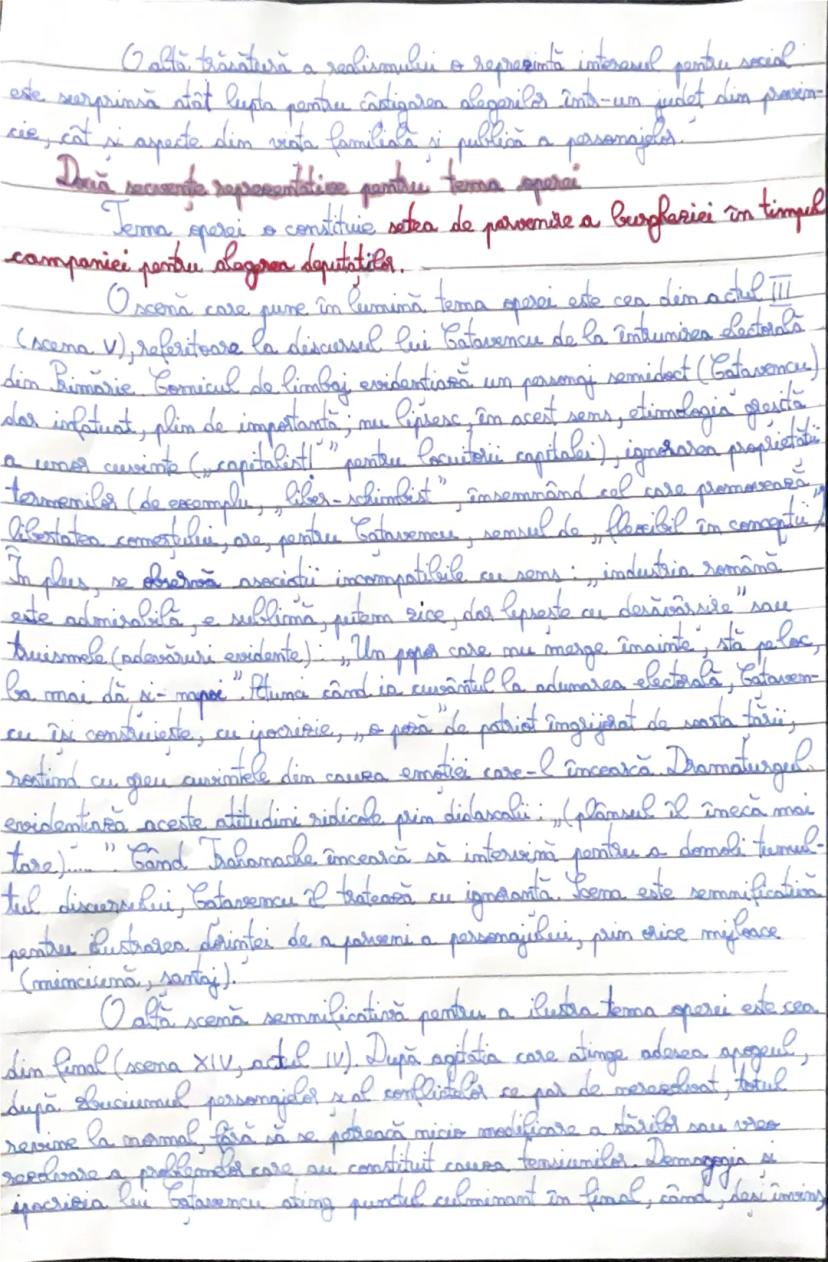 O altă trăsătură a realismului o reprezintă interesul pentru social
este surprinsă atât lupta pentru câștigarea alegerilor într-un județ din provin-
cie, cât și aspecte din viața familială și publică a personajelor.
Două secvențe reprezentative pentru tema operei
Tema operei o constituie setea de parvenire a burgheziei în timpul
campaniei pentru alegerea deputaților.
O scenă care pune în lumină tema operei este cea din actul III
(scena V), referitoare la discursul lui Cațavencu de la întrunirea electorală
din Primărie. Comicul de limbaj evidențiază un personaj semidoct (Cațavencu)
dar infatuat, plin de importanță; nu lipsesc, în acest sens, etimologia greșită
a unor cuvinte („capitaliști” pentru locuitorii capitalei), ignorarea proprietății
termenilor (de exemplu, „liber-schimbist”, însemnând cel care promovează
libertatea comerțului, are, pentru Cațavencu, sensul de „flexibil în concepții”)
În plus, se observă asociații incompatibile cu sens: „industria română
este admirabilă, e sublimă, putem zice, dar lipsește cu desăvârșire” sau
truismele (adevăruri evidente): „Un popor care nu merge înainte, stă pe loc,
ba mai dă și-napoi”. Atunci când ia cuvântul la adunarea electorală, Cațaven-
cu își construiește, cu ipocrizie, „o poză” de patriot îngrijorat de soarta țării,
rostind cu greu cuvintele din cauza emoției care-l încearcă. Dramaturgul
evidențiază aceste atitudini ridicole prin didascalii: „(plânsul îl înecă mai
tare)....”. Când Trahanache încearcă să intervină pentru a domoli tumul-
tul discursului, Cațavencu îl tratează cu ignoranță. Scena este semnificativă
pentru ilustrarea dorinței de a parveni a personajului, prin orice mijloace
(minciună, șantaj).
O altă scenă semnificativă pentru a ilustra tema operei este cea
din final (scena XIV, actul IV). După agitația care atinge adesea apogeul,
după zbuciumul personajelor și al conflictelor ce par de nerezolvat, totul
revine la normal, fără să se petreacă nicio modificare a stărilor sau vreo
rezolvare a problemelor care au constituit cauza tensiunilor. Demagogia și
ipocrizia lui Cațavencu ating punctul culminant în final, când, deși învins